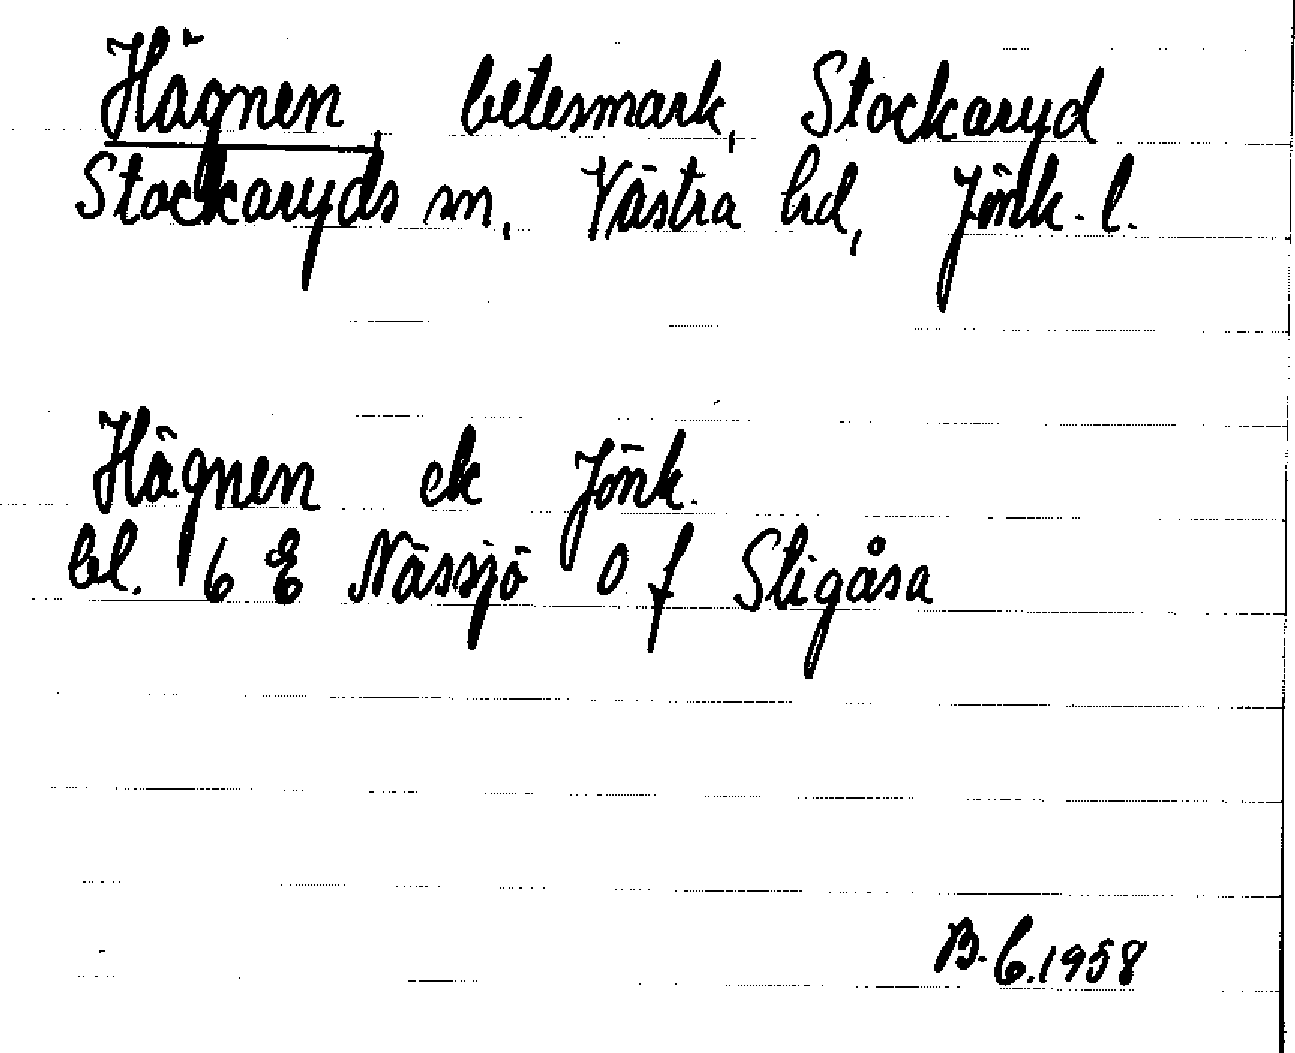 Hägnen, betesmark, Stockaryd
Stockaryds sn, Västra hd, Jönk. l.
Hägnen ek Jönk.
bl. 6 E Nässjö 0 f Stigåsa
B.C.1958